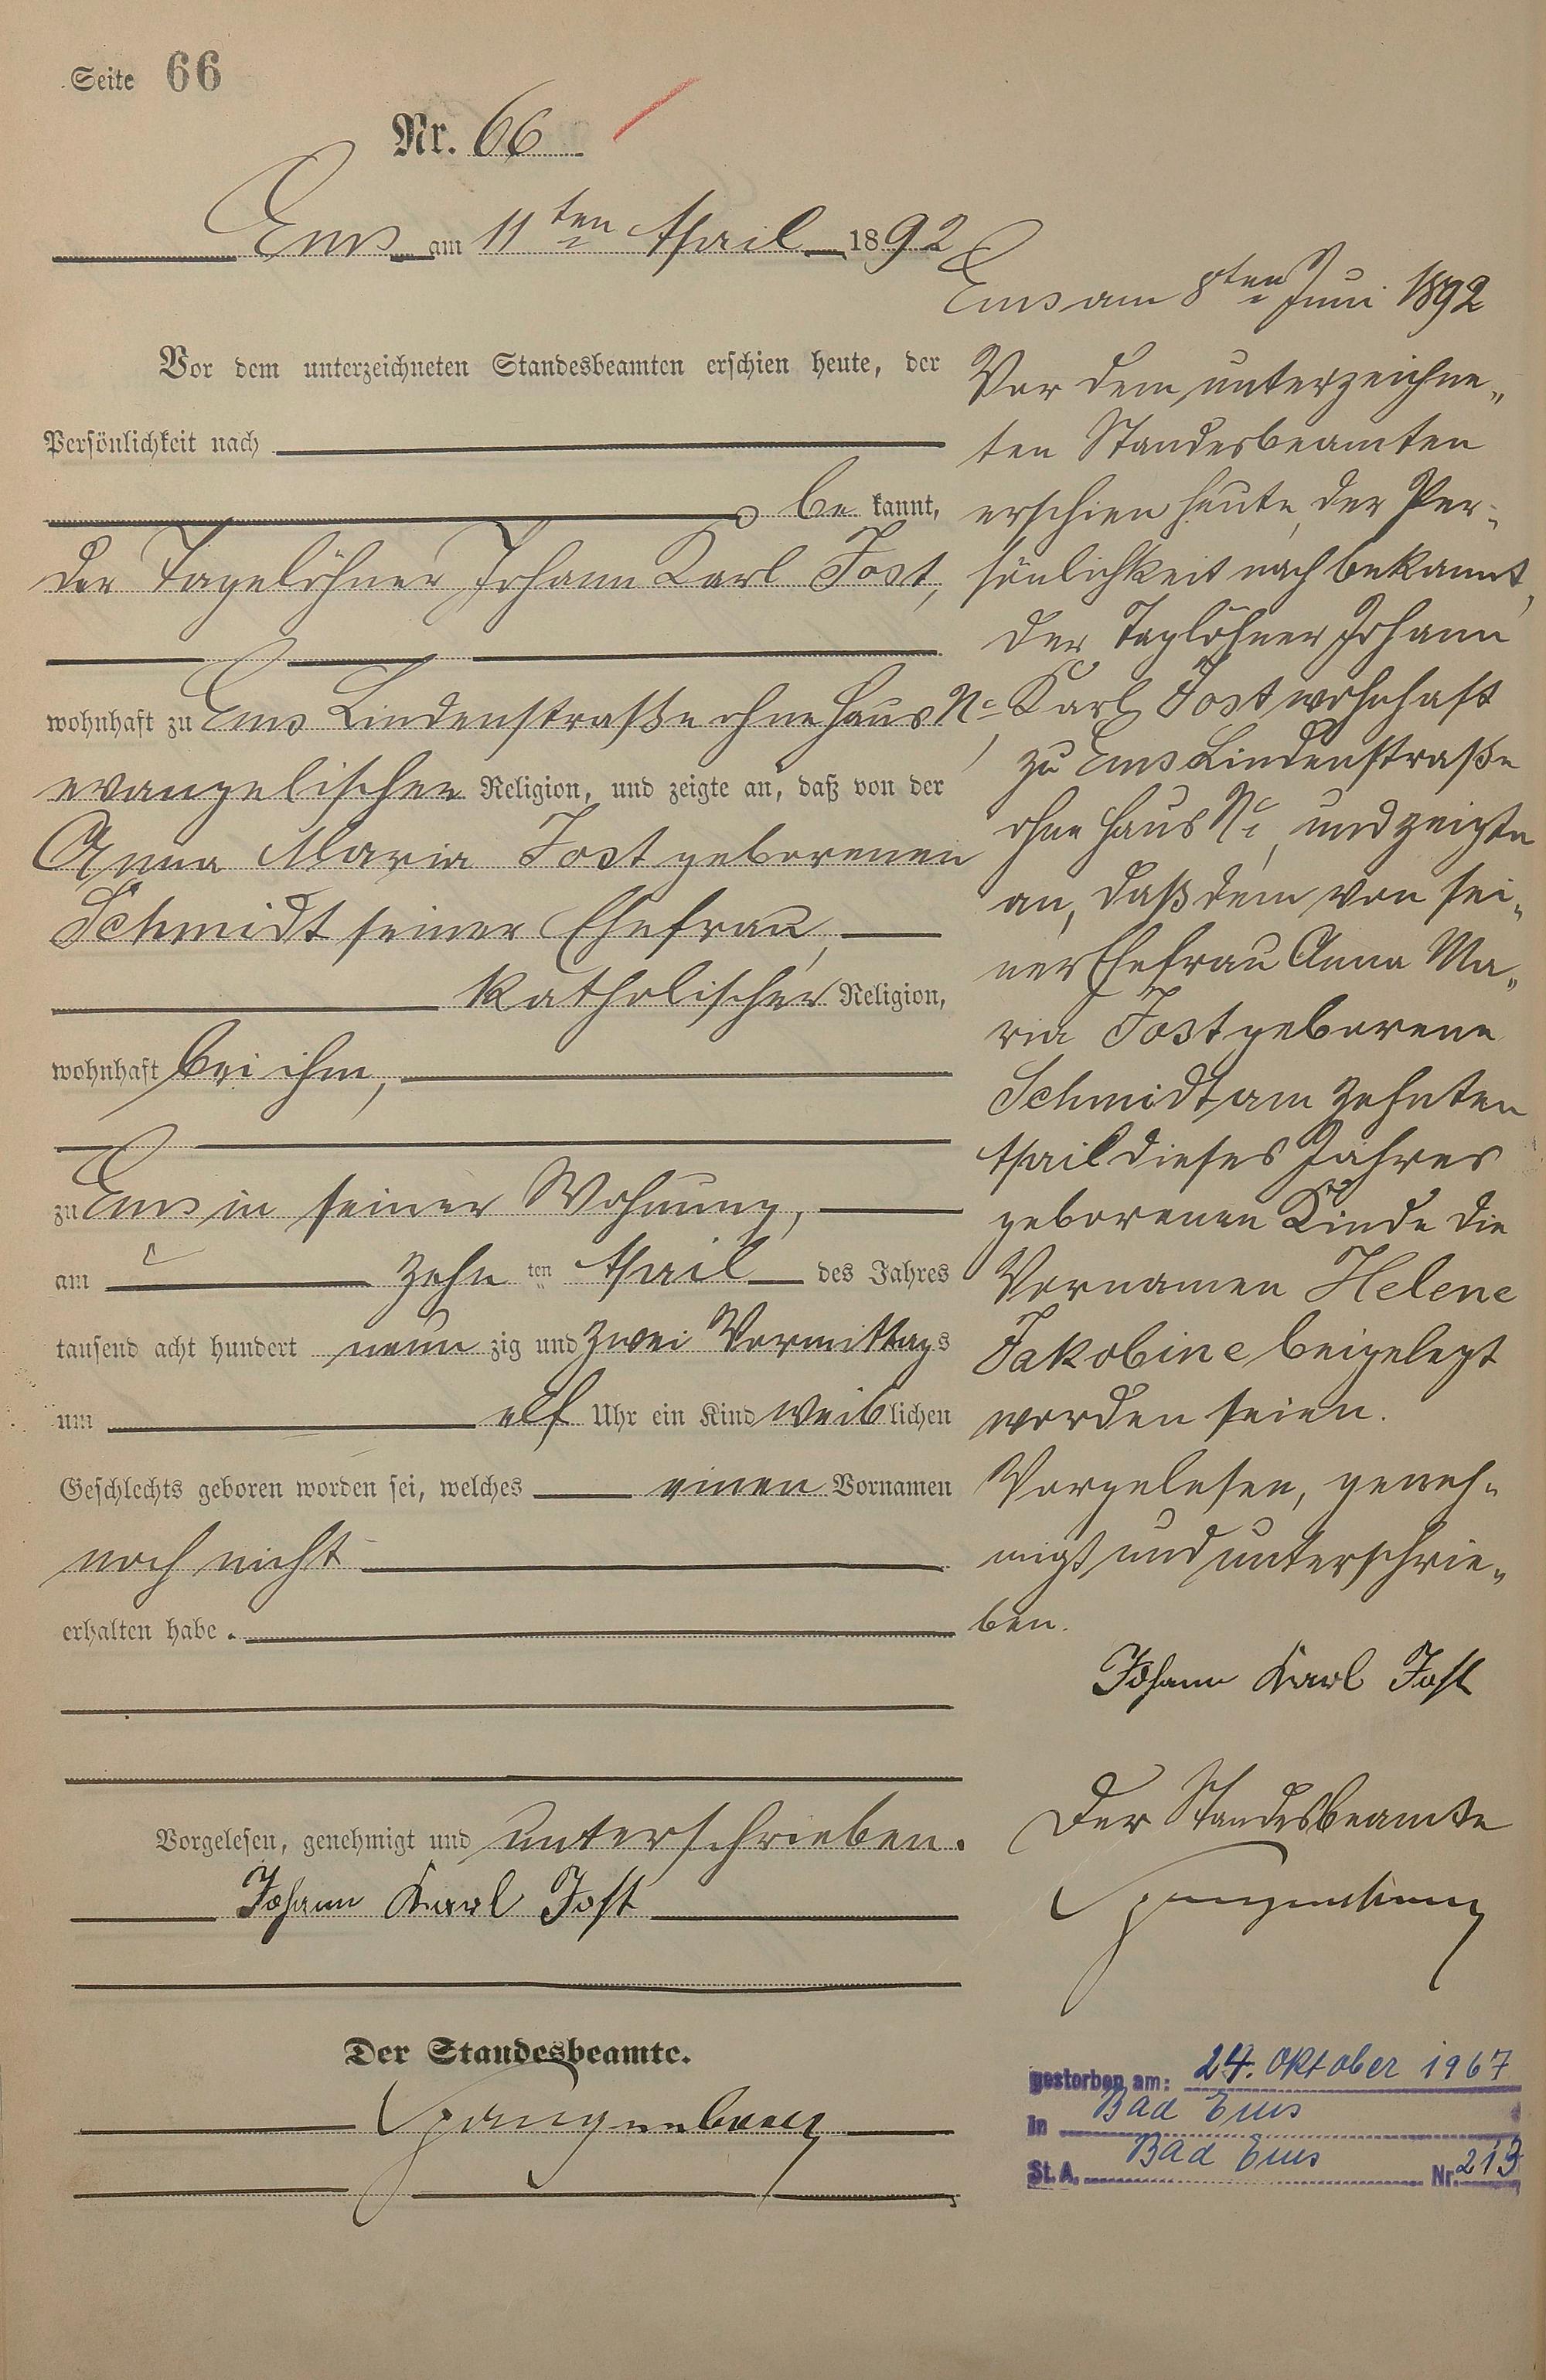 Seite 66
Nr. 66
Ems am 11ten April 1892
Vor dem unterzeichneten Standesbeamten erschien heute, der
Persönlichkeit nach
be kannt,
der Tagelöhner Johann Karl Jost,
wohnhaft zu Ems Lindenstraße ohne Haus No,
evangelischer Religion, und zeigte an, daß von der
Anna Maria Jost geborenen
Schmidt seiner Ehefrau,
katholischer Religion,
wohnhaft bei ihm,
zu Ems in seiner Wohnung,
am zehn ten April des Jahres
tausend acht hundert neun zig und zwei Vormittags
um elf Uhr ein Kind weiblichen
Geschlechts geboren worden sei, welches einen Vornamen
noch nicht
erhalten habe.
Vorgelesen, genehmigt und unterschrieben.
Johann Karl Jost
Der Standesbeamte.
Ems am 8ten Juni 1892
Vor dem unterzeichne„
ten Standesbeamten
erschien heute, der Per„
sönlichkeit nach bekannt,
der Taglöhner Johann
Karl Jost wohnhaft
zu Ems Lindenstraße
ohne Haus No, und zeigte
an, daß dem von sei„
ner Ehefrau Anna Ma„
ria Jost geborene
Schmidt am zehnten
April dieses Jahres
geborenen Kinde die
Vornamen Helene
Jakobine beigelegt
worden seien.
Vorgelesen, geneh„
migt und unterschrie„
ben.
Johann Karl Jost
Der Standesbeamte
gestorben am: 24. Oktober 1967
in Bad Ems
St. A. Bad Ems Nr. 213